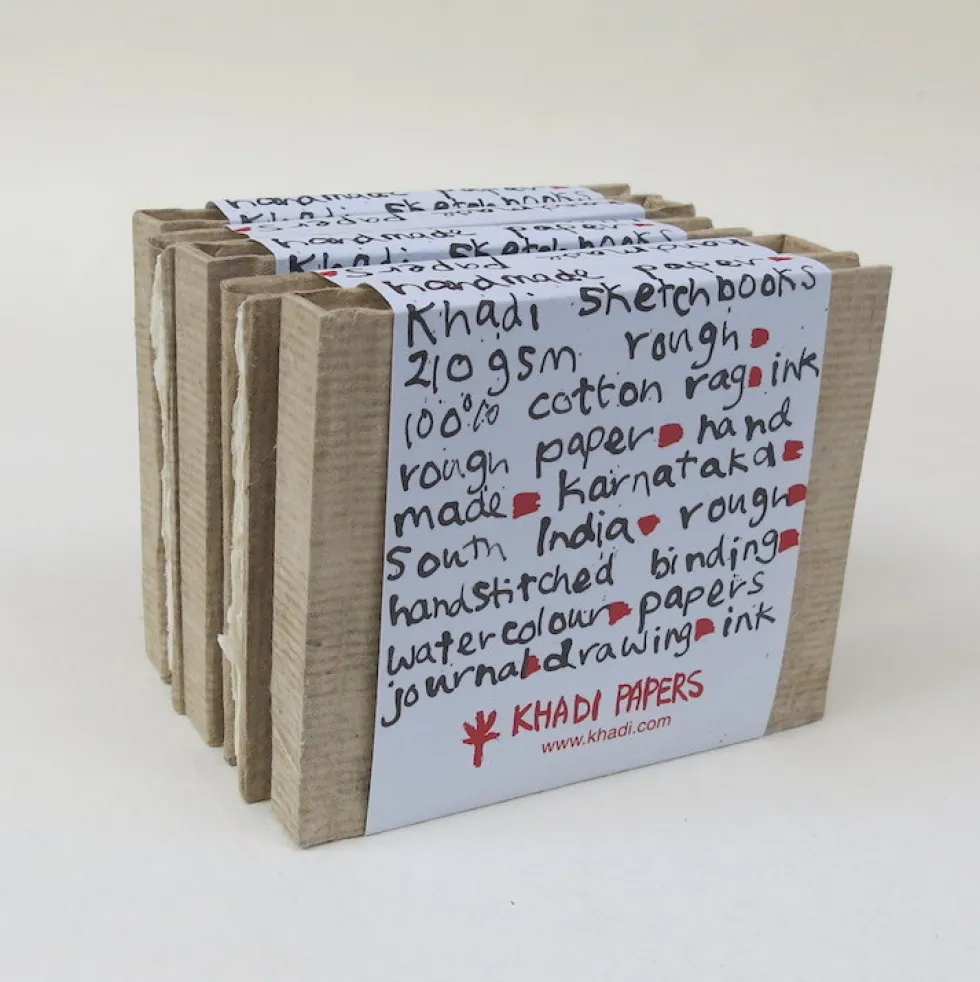 handmade paper
Khadi sketchbooks
papers
handmade paper
Khadi sketchbooks
papers handmade
handmade paper
Khadi sketchbooks
210gsm rough
100% cotton rag ink
rough paper hand
made Karnataka
South India rough
handstitched binding
watercolour papers
journal drawing ink
KHADI PAPERS
www.khadi.com